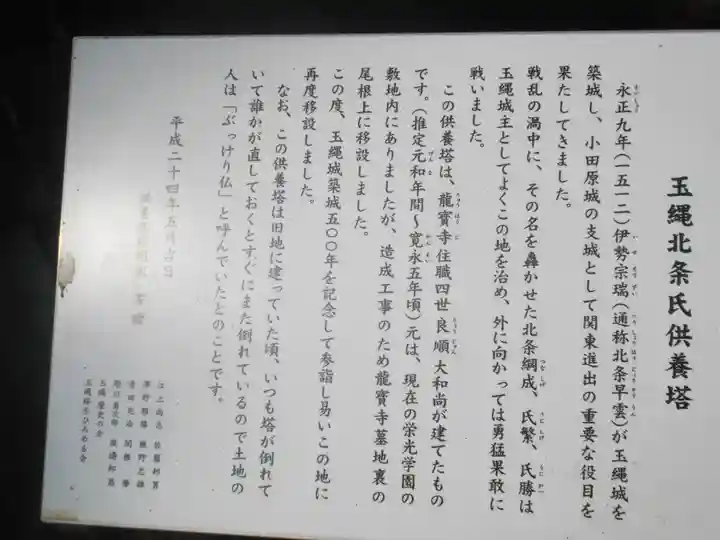 玉縄北条氏供養塔
永正九年(一五一二)伊勢宗瑞(通称北条早雲)が玉縄城を
築城し、小田原城の支城として関東進出の重要な役目を
果たしてきました。
戦乱の渦中に、その名を轟かせた北条綱成、氏繁、氏勝は
玉縄城主としてよくこの地を治め、外に向かっては勇猛果敢に
戦いました。
この供養塔は、龍寳寺住職四世良順大和尚が建てたもの
です。(推定元和年間〜寛永五年頃)元は、現在の栄光学園の
敷地内にありましたが、造成工事のため龍寳寺墓地裏の
尾根上に移設しました。
この度、玉縄城築城五〇〇年を記念して参詣し易いこの地に
再度移設しました。
なお、この供養塔は旧地に建っていた頃、いつも塔が倒れて
いて誰かが直しておくとすぐにまた倒れているので土地の
人は「ぶっけり仏」と呼んでいたとのことです。
平成二十四年五月吉日